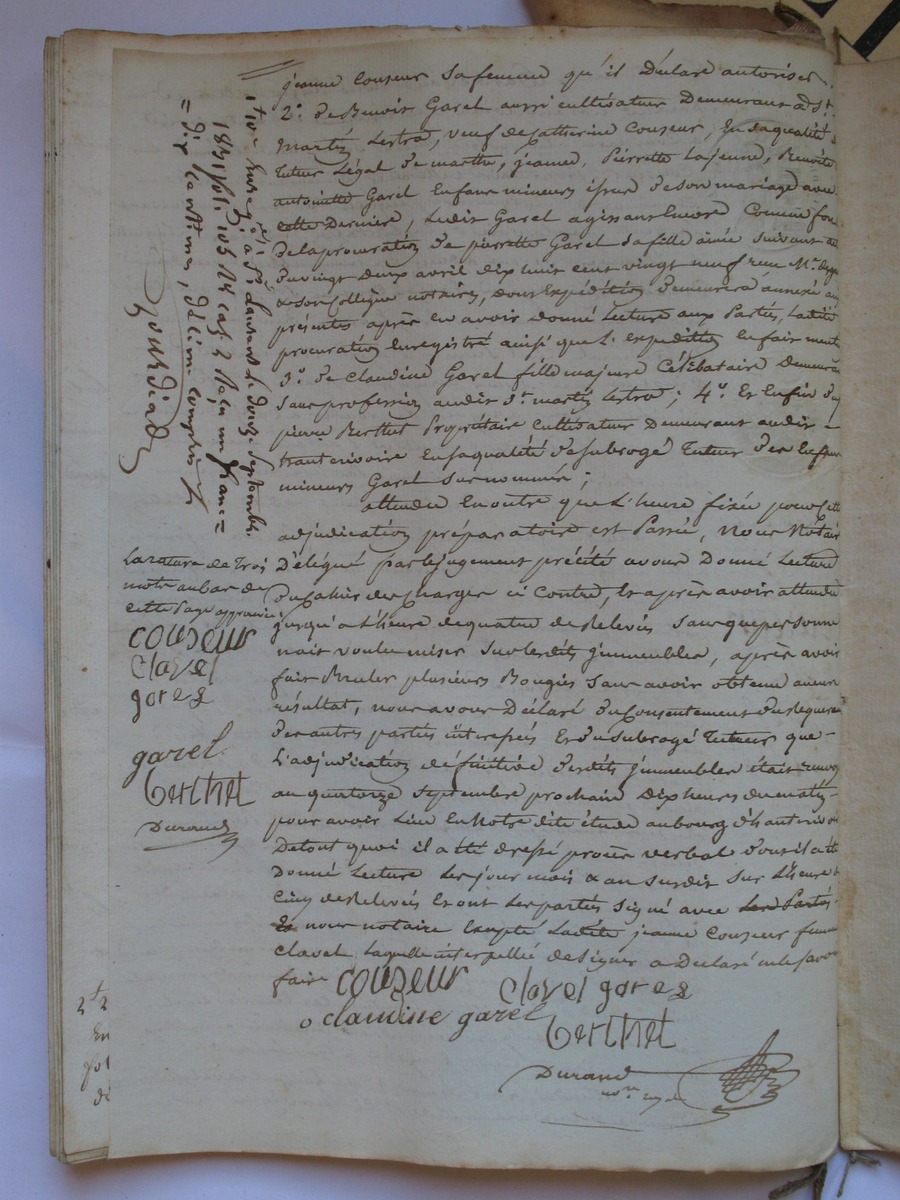 jeanne Couzeur sa femme qu'il Déclare autoriser
2.° de Benoit Garel aussi cultivateur Demeurant a dt St.
Martin Lestra, veuf de Catherine Couzeur, En sa qualité de
tuteur Légal de marthe, jeanne, Pierrette Lajeune, Benoite
antoinette Garel Enfans mineurs issus de son mariage avec
cette Derniere, Ledit Garel agissant Encore Comme fon
de la procuration de pierrette Garel sa fille ainée suivant acte
du vingt deux avril dix huit cent vingt neuf reçu Me.
& son Collègue notaires, dont Expédition demeurera annexé aux
présentes après en avoir donné Lecture aux Parties, Ladite
procuration Enregistré ainsi que L'expédition En fait mention
3.° de Claudine Garel fille majeure Célibataire Demeurant
sans profession audit St. martin Lestra; 4.° Et Enfin du
pierre Berthet Propriétaire Cultivateur Demeurant audit
hauterivoire En sa qualité de subrogé tuteur des Enfans
mineurs Garel sus nommés;
attendu En outre que L'heure fixée pour Cette
adjudication préparatoire est Passée, Nous Notaire
Délégué par le jugement précité avons Donné Lecture
Du Cahier des Charges ci Contre, Et après avoir attendu
jusqu'a L'heure de quatre de Relevée sans que personne
n'ait voulu miser sur lesdits immeubles, après avoir
fait Bruler plusieurs Bougies sans avoir obtenu aucun
résultat, nous avons Déclaré du Consentement du Requérant
des autres parties intéressées Et du subrogé Tuteur que
L'adjudication définitive desdits immeubles était renvoyée
au quatorze septembre prochain Dix heures du matin
pour avoir Lieu En Notre dite étude au bourg d'hauterivoire
De tout quoi il a été dressé procès verbal Dont il a été
Donné Lecture Les jour mois & an susdit sur L'heure de
Cinq de Relevée Et ont Les parties signé avec Les Parties
Et nous notaire Excepté Ladite jeanne Couzeur femme
Clavel Laquelle interpellée de signer a Déclaré ne le savoir
faire
couzeur
clavel garel
claudine garel
berthet
Durand
Enregistré à St. Laurent le douze septembre
1829
dix centimes, décime compris
Larature de Trois
mots au bas de
cette Page approuvée
couzeur
clavel
garel
garel
berthet
Durand